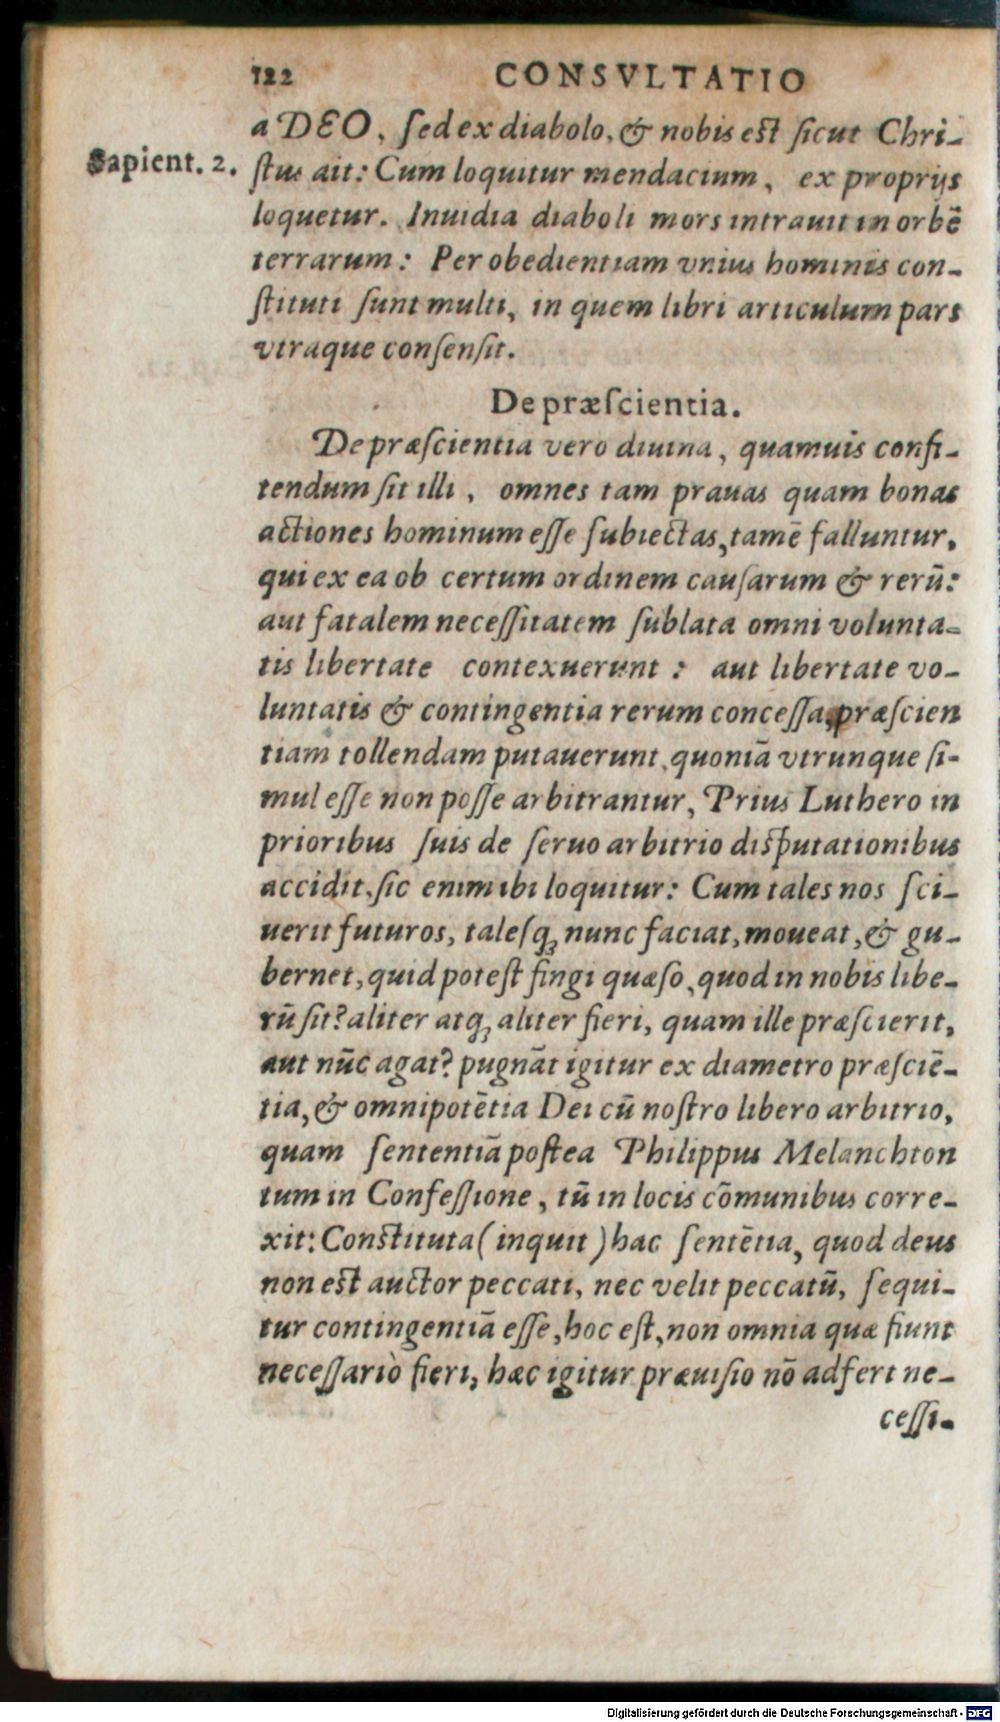 122 CONSVLTATIO
a DEO, ſed ex diabolo, & nobis eſt ſicut Chri-
Sapient. 2.
ſtus ait: Cum loquitur mendacium, ex proprijs
loquetur. Inuidia diaboli mors intrauit in orbē
terrarum: Per obedientiam vnius hominis con-
ſtituti ſunt multi, in quem libri articulum pars
vtraque conſenſit.
De præſcientia.
De præſcientia vero diuina, quamuis confi-
tendum ſit illi, omnes tam prauas quam bonas
actiones hominum eſſe ſubiectas, tamē falluntur,
qui ex ea ob certum ordinem cauſarum & rerū:
aut fatalem neceſſitatem ſublata omni volunta-
tis libertate contexuerunt: aut libertate vo-
luntatis & contingentia rerum conceſſa, præſcien
tiam tollendam putauerunt, quoniā vtrunque ſi-
mul eſſe non poſſe arbitrantur, Prius Luthero in
prioribus ſuis de ſeruo arbitrio diſputationibus
accidit, ſic enim ibi loquitur: Cum tales nos ſci-
uerit futuros, taleſq; nunc faciat, moueat, & gu-
bernet, quid poteſt fingi quæſo, quod in nobis libe-
rū ſit? aliter atq; aliter fieri, quam ille præſcierit,
aut nūc agat? pugnāt igitur ex diametro præſciē-
tia, & omnipotētia Dei cū noſtro libero arbitrio,
quam ſententiā poſtea Philippus Melanchton
tum in Confeſſione, tū in locis cōmunibus corre-
xit: Conſtituta (inquit) hac ſentētia, quod deus
non eſt auctor peccati, nec velit peccatū, ſequi-
tur contingentiā eſſe, hoc eſt, non omnia quæ fiunt
neceſſariò fieri, hæc igitur præuiſio nō adfert ne-
ceſſi-
Digitalisierung gefördert durch die Deutsche Forschungsgemeinschaft - DFG